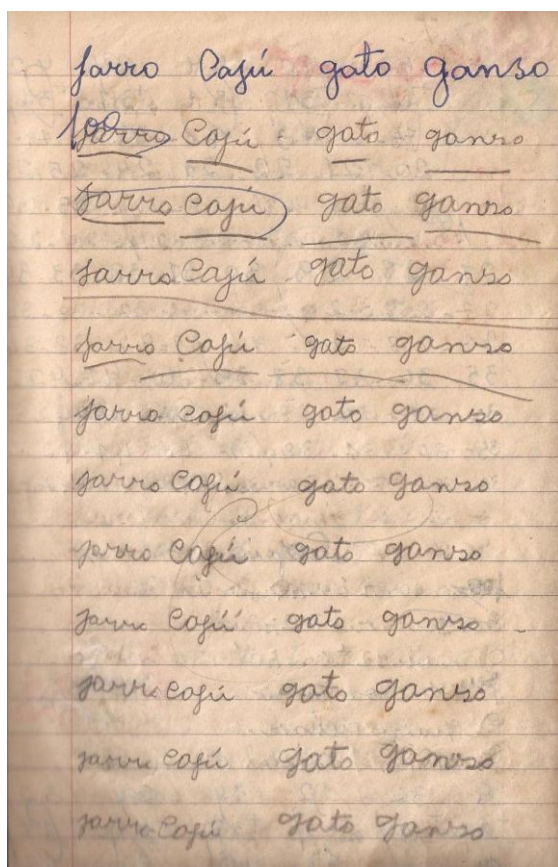 jarro Cajú gato ganso
100
jarro Cajú gato ganso
jarro Cajú gato ganso
jarro Cajú gato ganso
jarro Cajú gato ganso
jarro cajú gato ganso
jarro cajú gato ganso
jarro Cajú gato ganso
jarro Cajú gato ganso
jarro cajú gato ganso
jarro cajú gato ganso
jarro cajú gato ganso